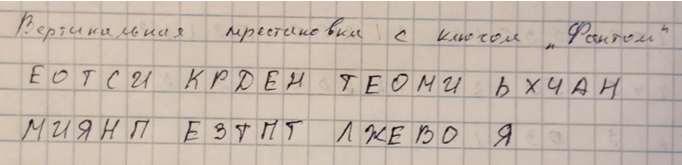 Вертикальная перестановка с ключом „Фантом“
ЕОТСИ КРДЕН ТЕОМИ ЬХЧАН
МИЯНП ЕЗТПТ ЛЖЕВО Я